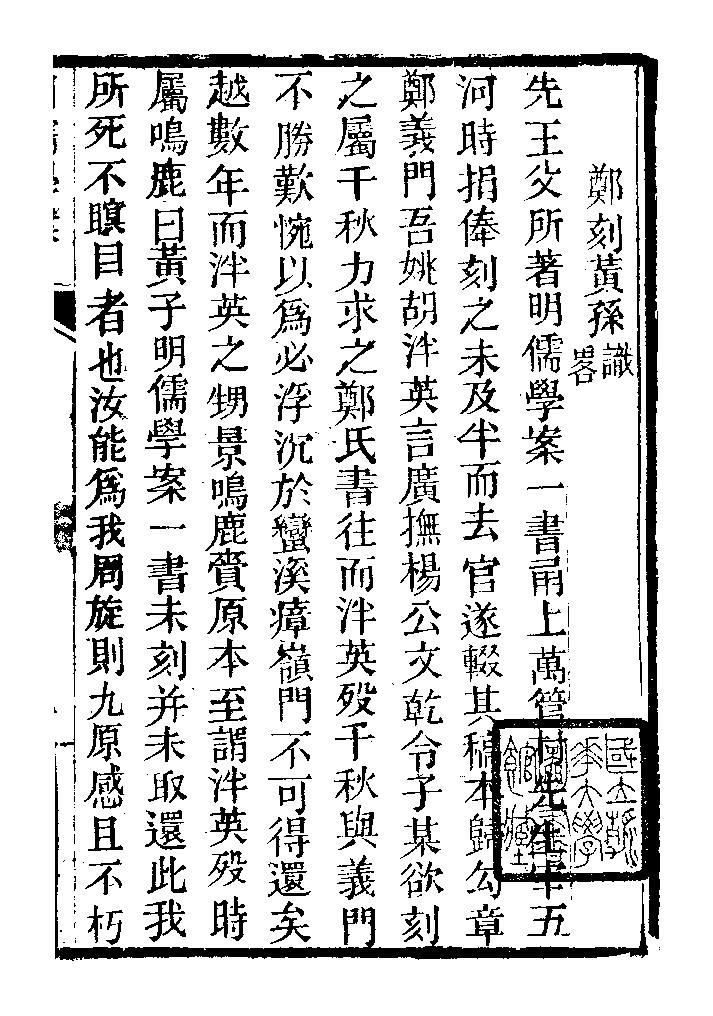 鄭刻黃孫識畧
先王父所著明儒學案一書甬上萬管村先生宰五
河時捐俸刻之未及半而去官遂輟其稿本歸勾章
鄭義門吾姚胡泮英言廣撫楊公文乾令子某欲刻
之屬千秋力求之鄭氏書往而泮英歿千秋與義門
不勝歎惋以爲必浮沉於蠻溪瘴嶺門不可得還矣
越數年而泮英之甥景鳴鹿賫原本至謂泮英歿時
屬鳴鹿曰黃子明儒學案一書未刻并未取還此我
所死不瞑目者也汝能爲我周旋則九原感且不朽
國立
大學
圖
館